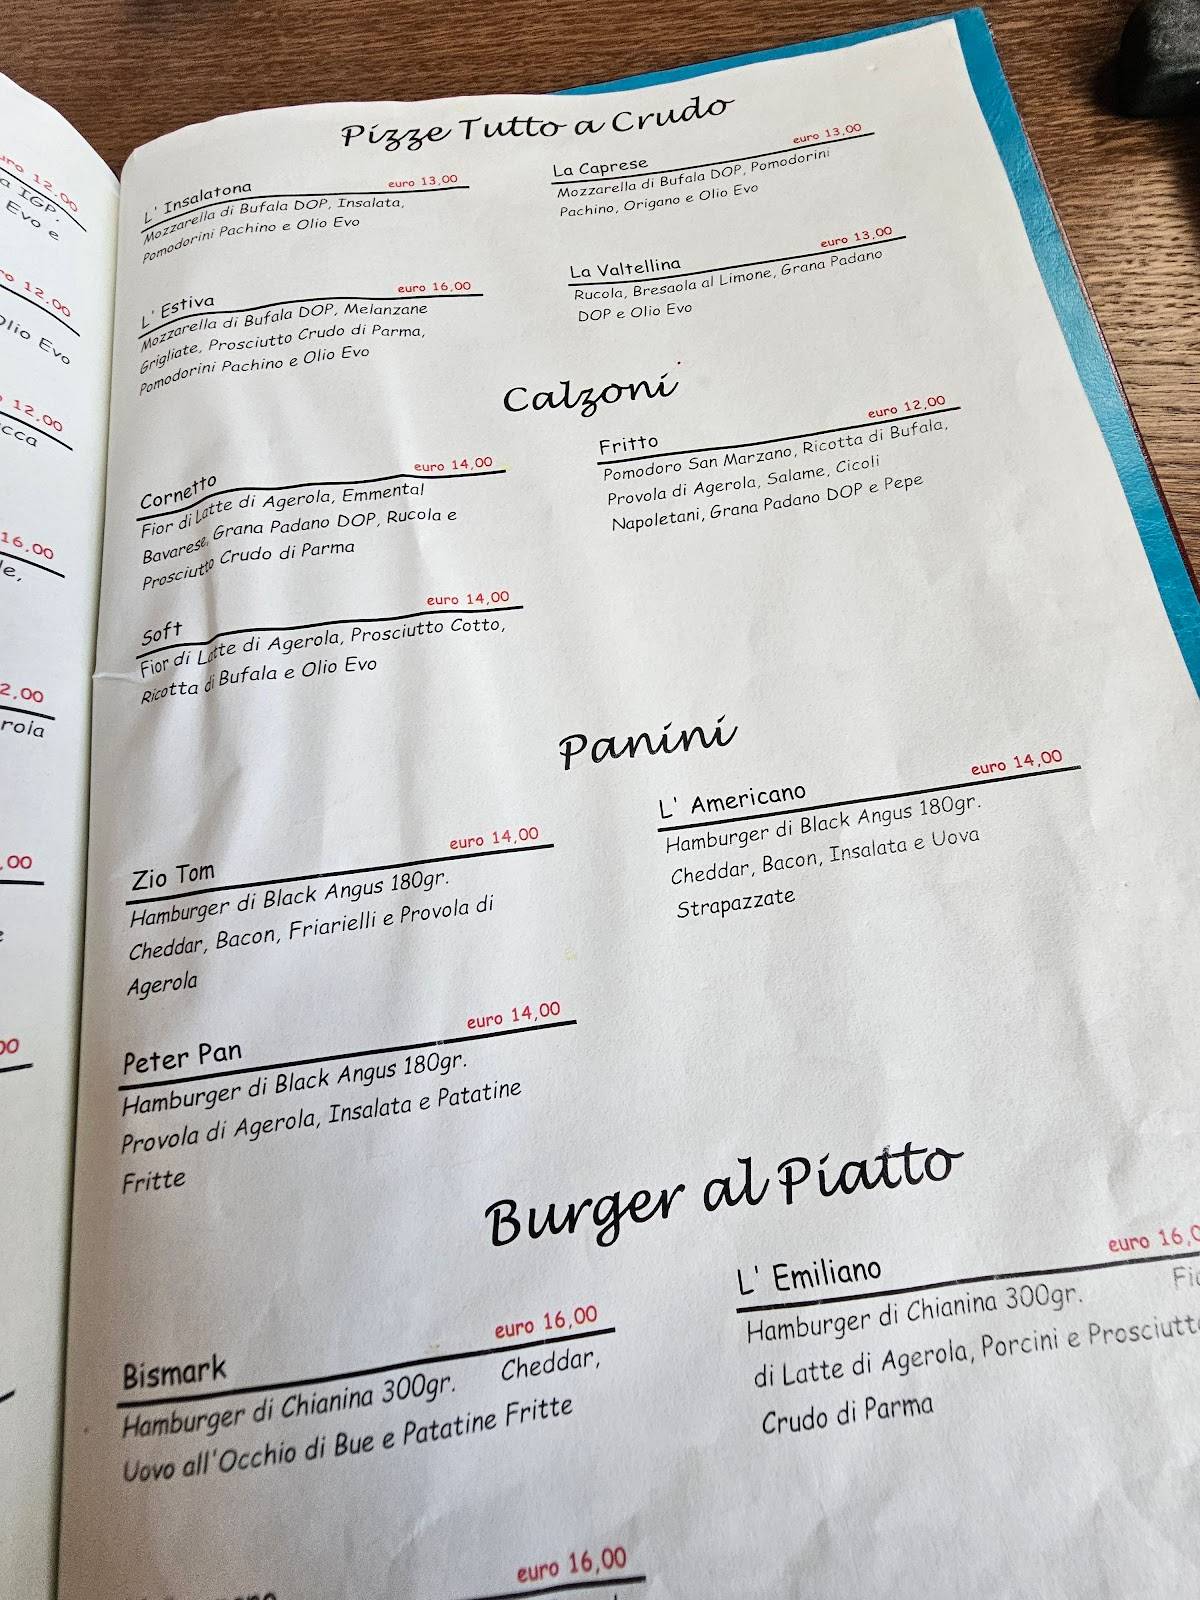 Pizze Tutto a Crudo
L' Insalatona euro 13,00
Mozzarella di Bufala DOP, Insalata,
Pomodorini Pachino e Olio Evo
La Caprese euro 13,00
Mozzarella di Bufala DOP, Pomodorini
Pachino, Origano e Olio Evo
L' Estiva euro 16,00
Mozzarella di Bufala DOP, Melanzane
Grigliate, Prosciutto Crudo di Parma,
Pomodorini Pachino e Olio Evo
La Valtellina euro 13,00
Rucola, Bresaola al Limone, Grana Padano
DOP e Olio Evo
Calzoni
Cornetto euro 14,00
Fior di Latte di Agerola, Emmental
Bavarese, Grana Padano DOP, Rucola e
Prosciutto Crudo di Parma
Fritto euro 12,00
Pomodoro San Marzano, Ricotta di Bufala,
Provola di Agerola, Salame, Cicoli
Napoletani, Grana Padano DOP e Pepe
Soft euro 14,00
Fior di Latte di Agerola, Prosciutto Cotto,
Ricotta di Bufala e Olio Evo
Panini
Zio Tom euro 14,00
Hamburger di Black Angus 180gr.
Cheddar, Bacon, Friarielli e Provola di
Agerola
L' Americano euro 14,00
Hamburger di Black Angus 180gr.
Cheddar, Bacon, Insalata e Uova
Strapazzate
Peter Pan euro 14,00
Hamburger di Black Angus 180gr.
Provola di Agerola, Insalata e Patatine
Fritte
Burger al Piatto
Bismark euro 16,00
Hamburger di Chianina 300gr. Cheddar,
Uovo all'Occhio di Bue e Patatine Fritte
L' Emiliano euro 16,0
Hamburger di Chianina 300gr.
di Latte di Agerola, Porcini e Prosciutto
Crudo di Parma
euro 16,00
12.00
IGP,
Evo e
12.00
Olio Evo
12,00
16,00